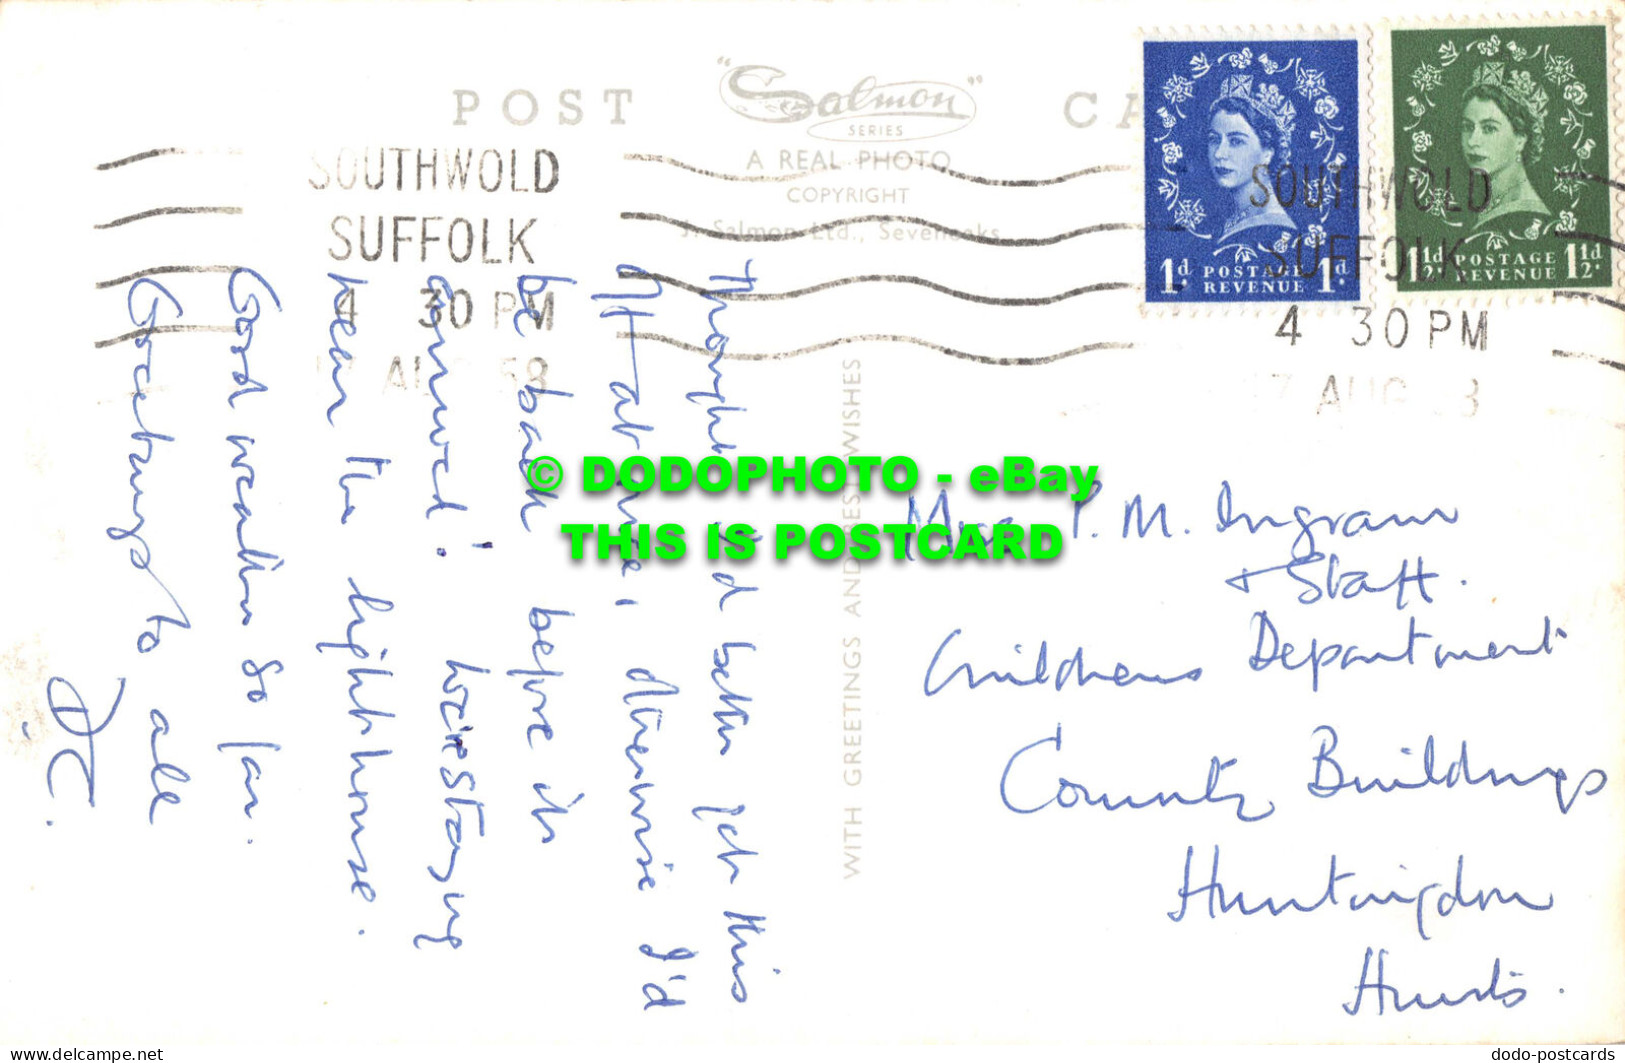 POST CA
"Salmon"
SERIES
A REAL PHOTO
COPYRIGHT
J. Salmon Ltd., Sevenoaks
SOUTHWOLD
SUFFOLK
4 30 PM
AUG 58
SOUTHWOLD
SUFFOLK
4 30 PM
17 AUG
1d. POSTAGE REVENUE 1d.
1½d. POSTAGE REVENUE 1½d.
WITH GREETINGS AND BEST WISHES
Thought I'd better get this
off at once, otherwise I'd
be back before it
arrived! We're staying
near the lighthouse.
Good weather so far.
Greetings to all
Miss P. M. Ingram
+ Staff.
Childrens Department
County Buildings
Huntingdon
Hunts.
© DODOPHOTO - eBay
THIS IS POSTCARD
dodo-postcards